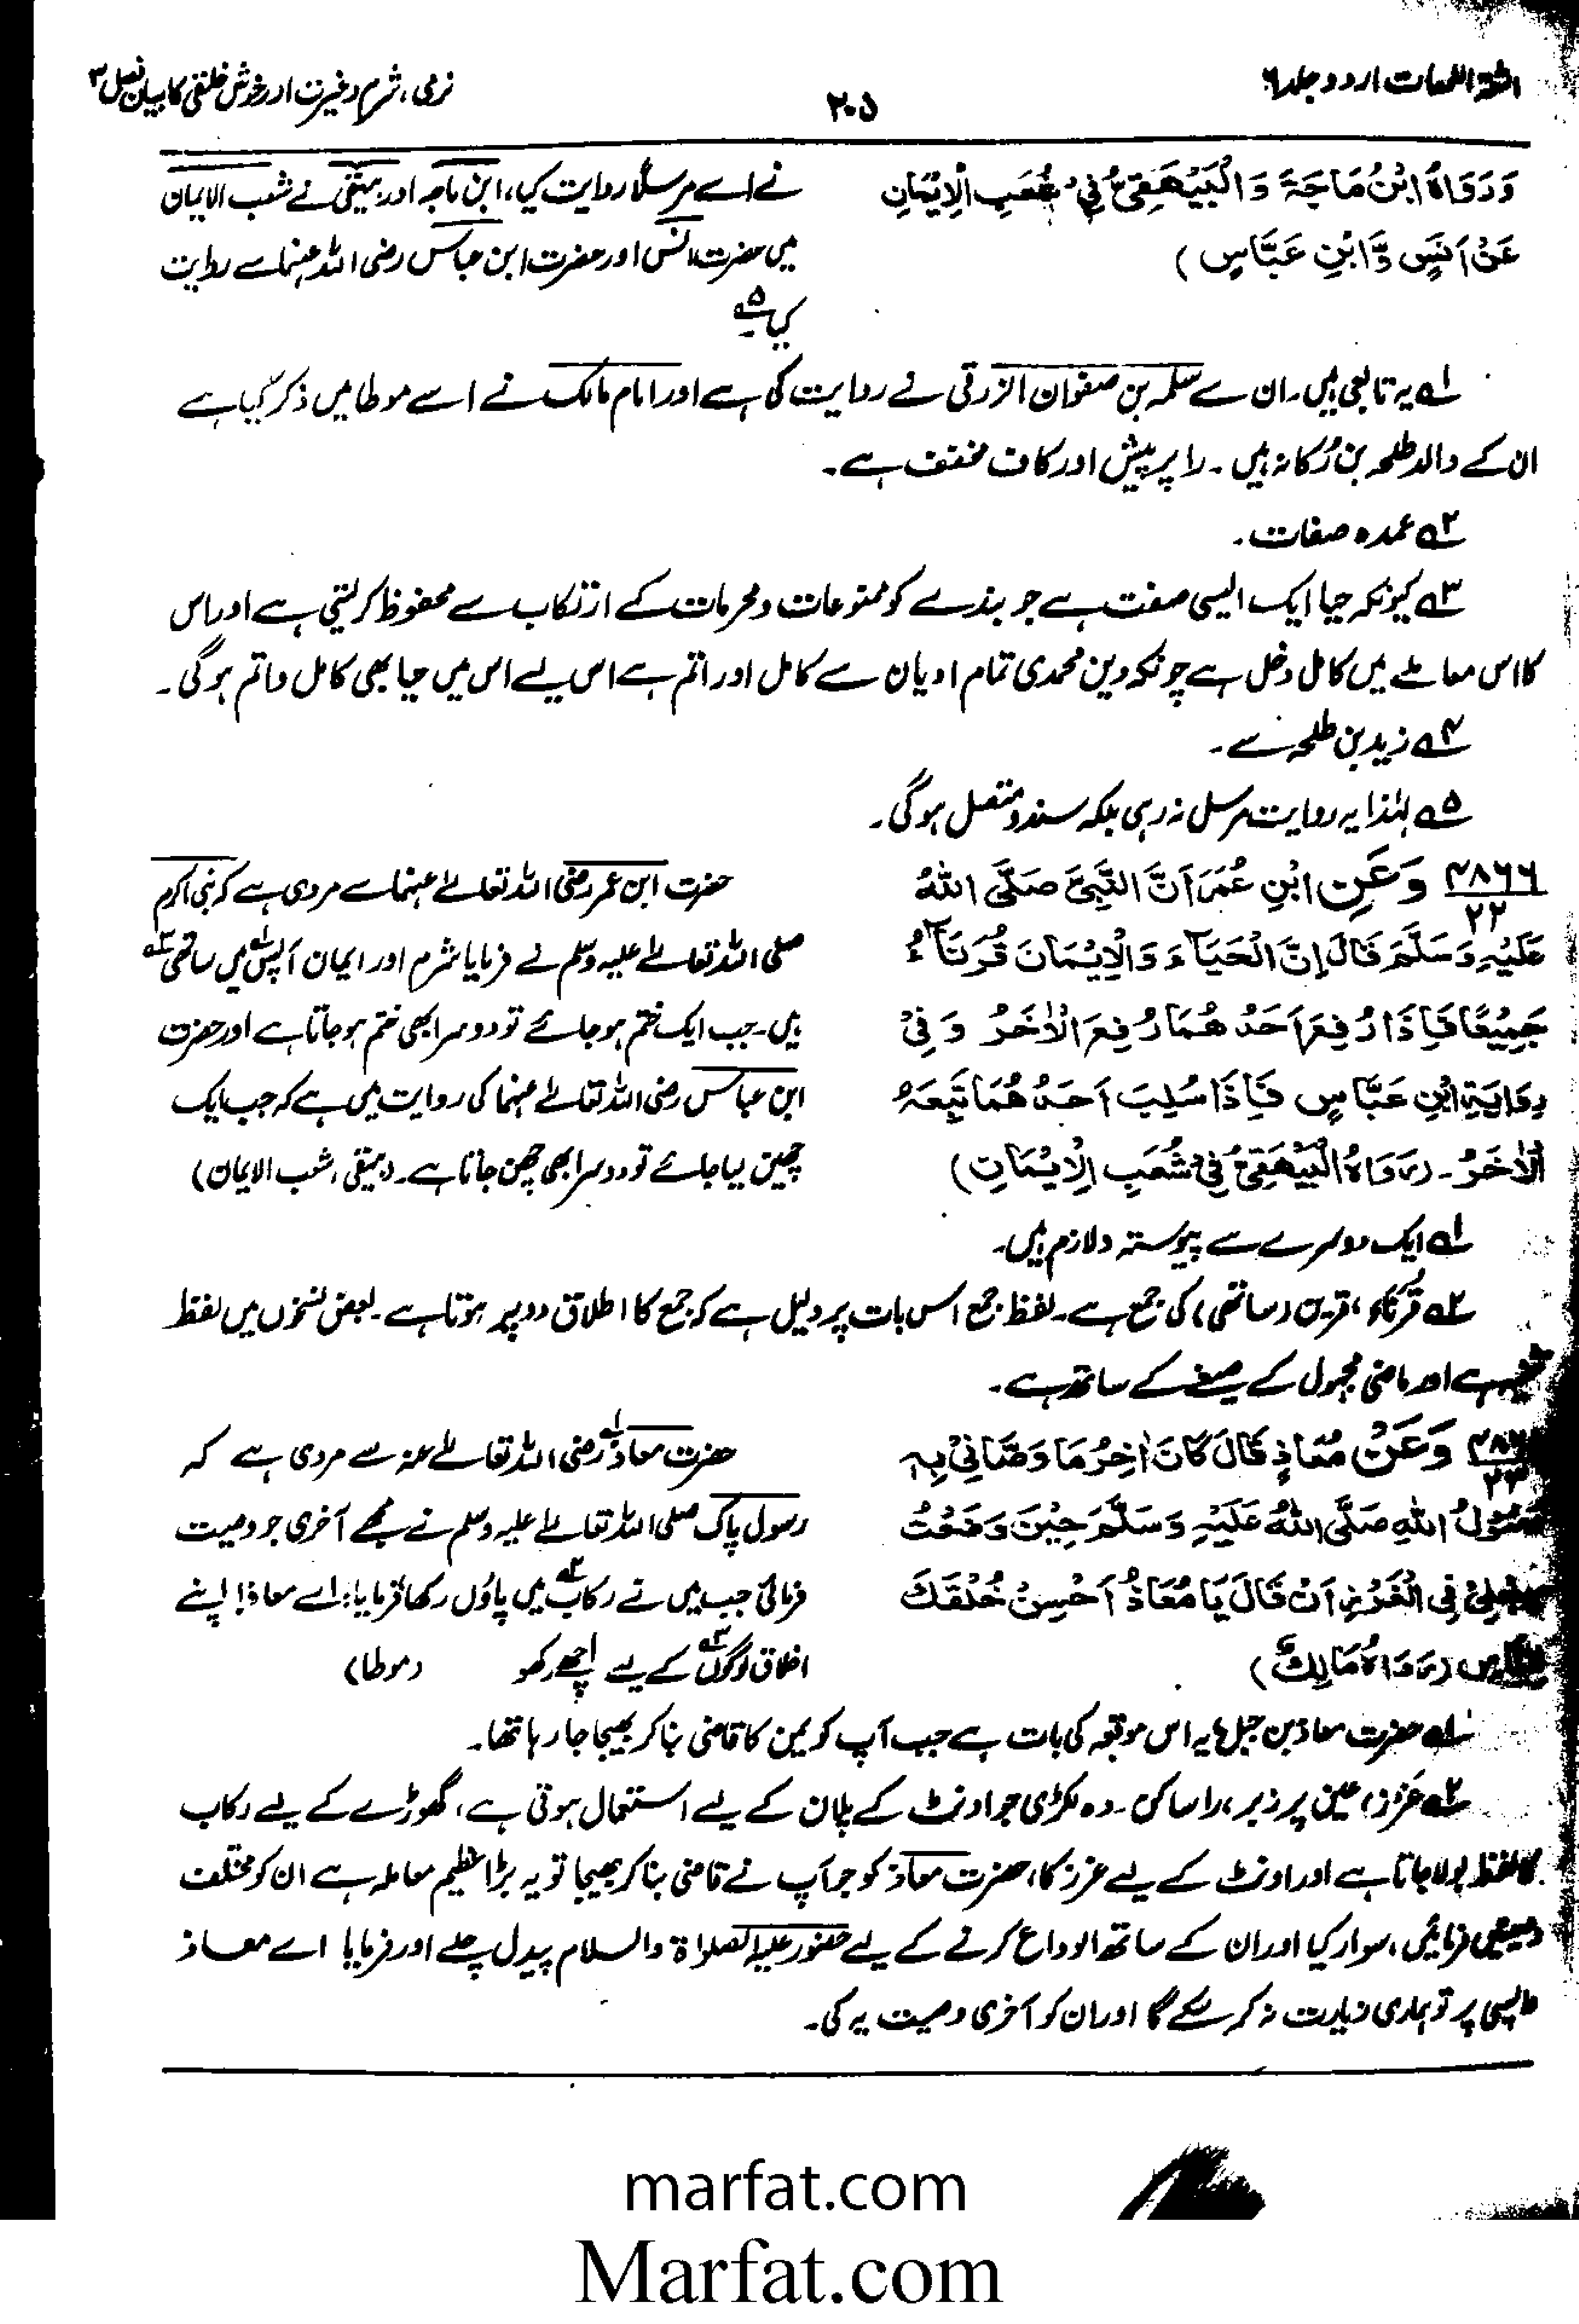 اشعۃ اللمعات اردو جلد ۶
۲۰۵
نرمی، شرم و غیرت اور خوش خلقی کا بیان فصل ۳
وَرَوَاهُ ابْنُ مَاجَةَ وَالْبَيْهَقِيُّ فِي شُعَبِ الْاِيْمَانِ
عَنْ اَنَسٍ وَّابْنِ عَبَّاسٍ )
نے اسے مرسلًا روایت کیا، ابن ماجہ اور بیہقی نے شعب الایمان
میں حضرت انس اور حضرت ابن عباس رضی اللہ عنہما سے روایت
کیا ۵؎
۱؎ یہ تابعی ہیں۔ ان سے سلمہ بن صفوان الزرقی نے روایت کی ہے اور امام مالک نے اسے موطا میں ذکر کیا ہے
ان کے والد طلحہ بن رُکانہ ہیں۔ را پر پیش اور کاف مخفف ہے۔
۲؎ عمدہ صفات۔
۳؎ کیونکہ حیا ایک ایسی صفت ہے جو بندے کو ممنوعات و محرمات کے ارتکاب سے محفوظ کر لیتی ہے اور اس
کا اس معاملے میں کامل دخل ہے چونکہ دین محمدی تمام ادیان سے کامل اور اتم ہے اس لیے اس میں حیا بھی کامل و اتم ہوگی۔
۴؎ زید بن طلحہ سے۔
۵؎ لہٰذا یہ روایت مرسل نہ رہی بلکہ سند متصل ہوگی۔
۴۸۶۶ وَعَنِ ابْنِ عُمَرَ اَنَّ النَّبِيَّ صَلَّى اللهُ
۲۲
عَلَيْهِ وَسَلَّمَ قَالَ اِنَّ الْحَيَآءَ وَالْاِيْمَانَ قُرَنَآءُ
جَمِيْعًا فَاِذَا رُفِعَ اَحَدُهُمَا رُفِعَ الْاٰخَرُ وَفِيْ
رِوَايَةِ ابْنِ عَبَّاسٍ فَاِذَا سُلِبَ اَحَدُهُمَا تَبِعَهُ
الْاٰخَرُ۔ (رَوَاهُ الْبَيْهَقِيُّ فِيْ شُعَبِ الْاِيْمَانِ)
حضرت ابن عمر رضی اللہ تعالےٰ عنہما سے مروی ہے کہ نبی اکرم
صلی اللہ تعالےٰ علیہ وسلم نے فرمایا شرم اور ایمان آپس ۱؎ میں ساتھی ۲؎
ہیں۔ جب ایک ختم ہو جائے تو دوسرا بھی ختم ہو جاتا ہے اور حضرت
ابن عباس رضی اللہ تعالےٰ عنہما کی روایت میں ہے کہ جب ایک
چھین لیا جائے تو دوسرا بھی چھن جاتا ہے۔ (بیہقی، شعب الایمان)
۱؎ ایک دوسرے سے پیوستہ و لازم ہیں۔
۲؎ قُرَنَاءُ، قرین (ساتھی) کی جمع ہے۔ لفظ جمع اس بات پر دلیل ہے کہ جمع کا اطلاق دو پر ہوتا ہے۔ بعض نسخوں میں لفظ
ہے اور ماضی مجہول کے صیغے کے ساتھ ہے۔
وَعَنْ مُعَاذٍ قَالَ كَانَ اٰخِرُ مَا وَصَّانِيْ بِهٖ
۲۳
رَسُوْلُ اللهِ صَلَّى اللهُ عَلَيْهِ وَسَلَّمَ حِيْنَ وَضَعْتُ
رِجْلِيْ فِي الْغَرْزِ اَنْ قَالَ يَا مُعَاذُ اَحْسِنْ خُلُقَكَ
لِلنَّاسِ (رَوَاهُ مَالِكٌ)
حضرت معاذ ۱؎ رضی اللہ تعالےٰ عنہ سے مروی ہے کہ
رسول پاک صلی اللہ تعالےٰ علیہ وسلم نے مجھے آخری جو وصیت
فرمائی جب میں نے رکاب ۲؎ میں پاؤں رکھا فرمایا: اے معاذ! اپنے
اخلاق لوگوں ۳؎ کے لیے اچھے رکھو (موطا)
۱؎ حضرت معاذ بن جبل، یہ اس موقعہ کی بات ہے جب آپ کو یمن کا قاضی بنا کر بھیجا جا رہا تھا۔
۲؎ غَرْز، غین پر زبر، را ساکن۔ وہ لکڑی جو اونٹ کے پلان کے لیے استعمال ہوتی ہے، گھوڑے کے لیے رکاب
کا لفظ بولا جاتا ہے اور اونٹ کے لیے غرز کا، حضرت معاذ کو جو آپ نے قاضی بنا کر بھیجا تو یہ بڑا عظیم معاملہ ہے ان کو مختلف
وصیتیں فرمائیں، سوار کیا اور ان کے ساتھ الوداع کرنے کے لیے حضور علیہ الصلواۃ والسلام پیدل چلے اور فرمایا اے معاذ
واپسی پر تو ہماری زیارت نہ کر سکے گا اور ان کو آخری وصیت یہ کی۔
marfat.com
Marfat.com